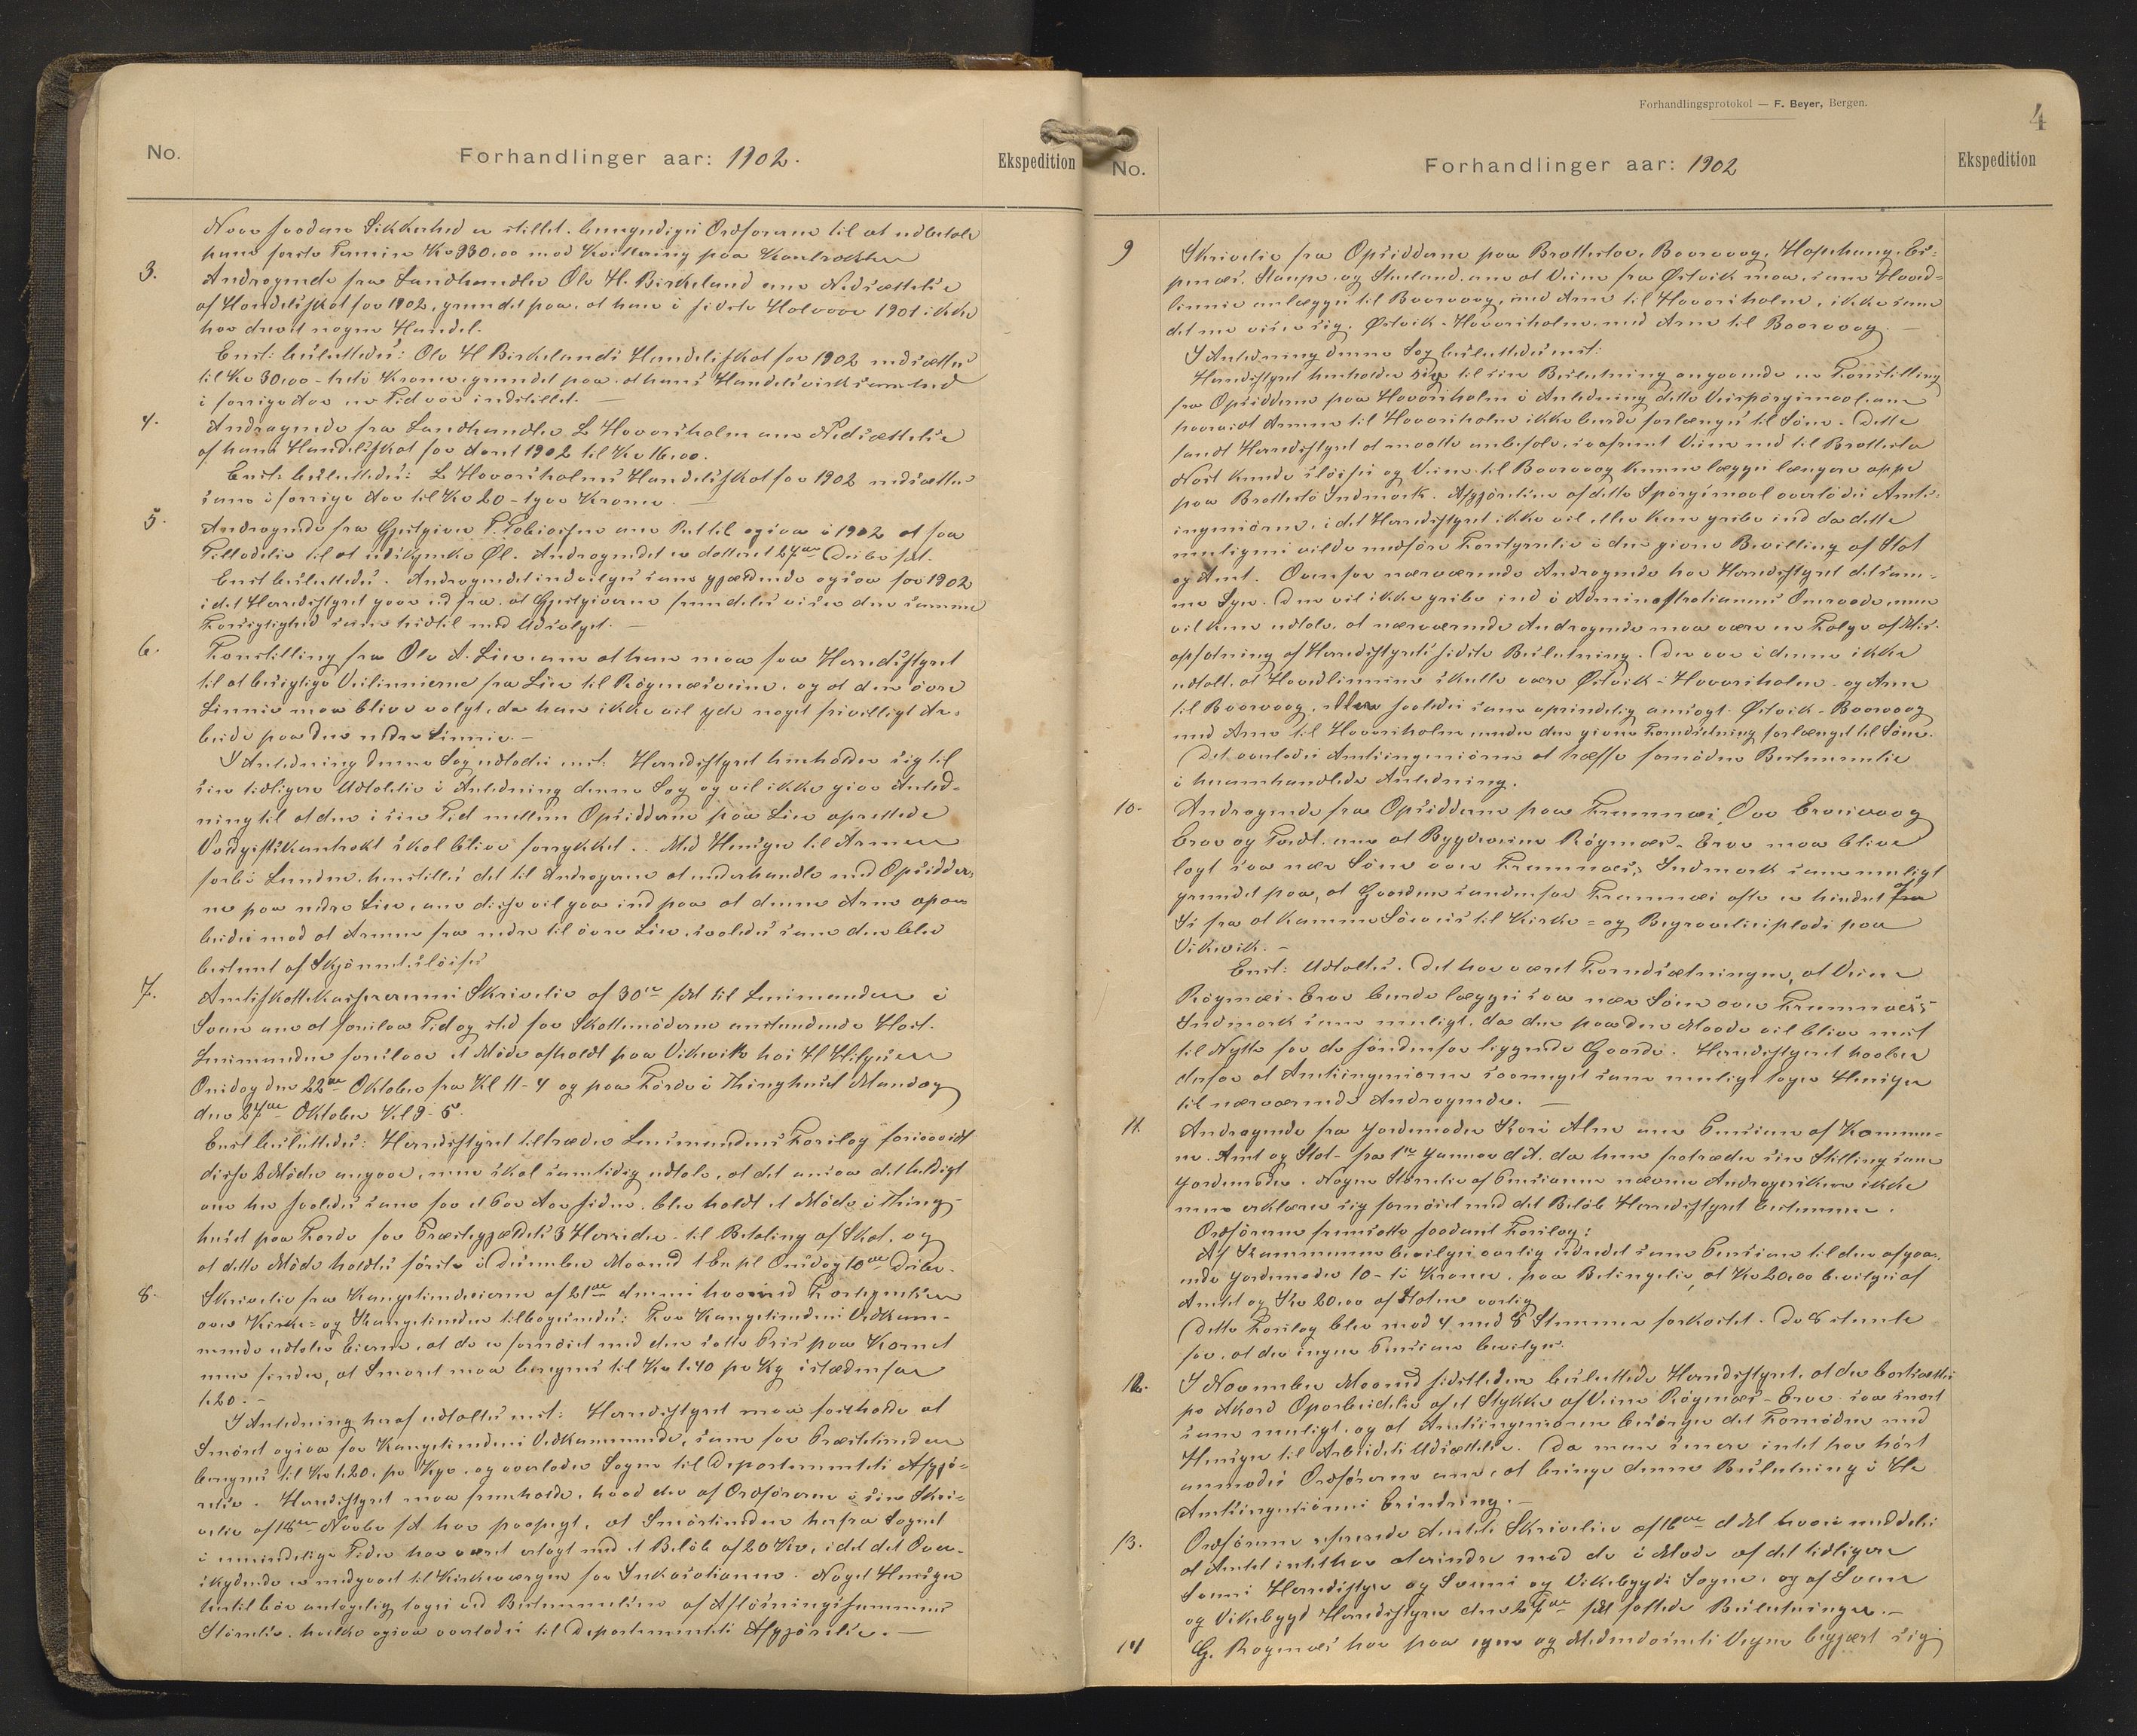 No.
Forhandlinger aar: 1902.
Ekspedition
Naar saadan Sikkerhed er stillet, bemyndiges Ordføreren til at udbetale
ham første Termin Kr 330,00 mod Kvittering paa Kontrakten
3. Andragende fra Landhandler Ole H. Birkeland om Nedsættelse
af Handelsskat for 1902, grundet paa, at han i sidste Halvaar 1901 ikke
har drevet nogen Handel.
Enst: besluttedes: Ole H Birkelands Handelsskat for 1902 nedsættes
til Kr 30,00 - treti Kroner, grundet paa, at hans Handelsvirksomhed
i forrige Aar en Tid var indstillet. —
4. Andragende fra Landhandler L Hovorsholm om Nedsættelse
af hans Handelsskat for Aaret 1902 til Kr 16,00.
Enst: besluttedes: L Hovorsholms Handelsskat for 1902 nedsættes
som i forrige Aar til Kr 20 - tyve Kroner. —
5. Andragende fra Gjestgiver T. Tobiassen om Ret til ogsaa i 1902 at faa
Tilladelse til at udskjænke Øl. Andragendet er dateret 27de Decbr sidstl.
Enst besluttedes. Andragendet indvilges som gjældende ogsaa for 1902
idet Herredsstyret gaar ud fra, at Gjestgiveren fremdeles viser den samme
Forsigtighed som hidtil med Udsalget. —
6. Forestilling fra Ole A. Lien om at han maa faa Herredsstyret
til at besigtige Veilinnierne fra Lien til Røgenæsveien, og at den øvre
Linnie maa blive valgt, da han ikke vil yde noget frivilligt Ar-
beide paa den nedre Linnie. —
I Anledning denne Sag udtaltes enst: Herredsstyret henholder sig til
sin tidligere Udtalelse i Anledning denne Sag og vil ikke give Anled-
ning til at den i sin Tid mellem Opsidderne paa Lien oprettede
Voldgiftskontrakt skal blive forrykket. Med Hensyn til Armen
forbi Lunden, henstilles det til Andrageren at underhandle med Opsidder-
ne paa nedre Lien, om disse vil gaa ind paa at denne Arm opar-
beides mod at Armen fra nedre til øvre Lien, saaledes som den blev
bestemt af Skjønnet, sløifes
7. Amtsskattekassererens Skrivelse af 30te sidstl til Lensmanden i
Sveen om at foreslaa Tid og sted for Skattemøderne anstundende Høst.
Lensmanden foreslaar et Møde afholdt paa Vikevik hos H Hilgesen
Onsdag den 22de Oktober fra Kl 11-4 og paa Førde i Thinghuset Mandag
den 27de Oktober Kl 9-5.
Enst besluttedes: Herredsstyret tiltræder Lensmandens Forslag forsaavidt
disse 2 Møder angaar, men skal samtidig udtale, at det ansaa det heldigt
om her saaledes som for et Par Aar siden, blev holdt et Møde i Thing-
huset paa Førde for Præstegjældets 3 Herreder til Betaling af Skat, og
at dette Møde holdtes første i December Maaned t Ex pl Onsdag 10de Decbr.
8. Skrivelse fra Kongetiendeeierne af 21de dennes hvorved Fortegnelsen
over Kirke- og Kongetienden tilbagesendes: For Kongetiendens Vedkom-
mende udtaler Eierne, at de er fornøiet med den satte Pris paa Kornet
men finder, at Smøret maa beregnes til Kr 1.40 pr Kg istedenfor
1.20. —
I Anledning heraf udtaltes enst: Herredsstyret maa fastholde at
Smøret ogsaa for Kongetiendens Vedkommende, som for Præstetienden
beregnes til Kr 1.20, pr Kgr, og overlader Sagen til Departementets Afgjø-
relse. Herredsstyret maa fremholde, hvad der af Ordføreren i sin Skri-
velse af 18de Novbr f A har paapegt, at Smørtienden herfra Sognet
i umindelige Tider har været erlagt med et Beløb af 20 Kr, idet det Over-
skydende er medgaaet til Kirkeværgen for Inkasationen. Noget Hensyn
hertil bør antagelig tages ved Bestemmelsen af Afløsningssummens
Størrelse, hvilke ogsaa overlades til Departementets Afgjørelse. —
Forhandlingsprotokol — F. Beyer, Bergen.
4
No.
Forhandlinger aar: 1902
Ekspedition
9 Skrivelse fra Opsidderne paa Bratteslov, Baaravaag, Hafschaug, Es-
penæs, Staupe, og Skeeland, om at Veien fra Østvik maa, som Hoved-
linnie anlægges til Baaravaag, med Arm til Hovorsholm, ikke som
det nu viser sig, Østvik - Hovorsholm, med Arm til Baaravaag. —
I Anledning denne Sag besluttedes enst:
Herredsstyret henholder sig til sin Beslutning angaaende en Forestilling
fra Opsidderne paa Hovorsholm i Anledning dette Veispørgsmaal, om
hvorvidt Armen til Hovorsholm ikke burde forlænges til Søen. Dette
fandt Herredsstyret at maatte anbefale, saafremt Veien ned til Brattesta
Nøst kunde sløifes og Veien til Baaravaag kunne lægges længere oppe
paa Brattestø Indmark. Afgjørelsen af dette Spørgsmaal overlodes Amts-
ingeniøren, idet Herredsstyret ikke vil eller kan gribe ind da dette
muligens vilde medføre Forstyrrelse i den givne Bevilling af Stat
og Amt. Ovenfor nærværende Andragende har Herredsstyret det sam-
me Syn. Den vil ikke gribe ind i Administrationens Omraade, men
vil kun udtale, at nærværende Andragende maa være en Følge af Mis-
opfatning af Herredsstyrets sidste Beslutning. Der var i denne ikke
udtalt, at Hovedlinnien skulle være Østvik - Hovorsholm - og Arm
til Baaravaag, eller saaledes som oprindelig ansøgt Østvik - Baaravaag
med Arm til Hovorsholm under den givne Forudsetning forlænget til Søen.
Det overlades Amtsingeniøren at træffe fornøden Bestemmelse
i heromhandlede Anledning.
10. Andragende fra Opsidderne paa Tremnæs, Ovr Eraasvaag
Eraa og Tvedt, om at Bygdeveien Røgenæs - Eraa maa blive
lagt saa nær Søen over Tremnæs Indmark som muligt
grundet paa, at Gaardene søndenfor Tremnæs ofte er hindret af
Is fra at komme Søveis til Kirke- og Begravelsesplads paa
Vikevik. —
Enst: Udtaltes. Det har været Forudsætningen, at Veien
Røgenæs - Eraa burde lægges saa nær Søen over Tremnæs
Indmark som muligt, da den paa den Maade vil blive mest
til Nytte for de søndenfor liggende Gaarde. Herredsstyret haaber
derfor at Amtsingeniøren saameget som muligt tager Hensyn
til nærværende Andragende. —
11. Andragende fra Jordemoder Kari Alne om Pension af Kommu-
ne, Amt og Stat - fra 1ste Januar d A, da hun fratræder sin Stilling som
Jordemoder. Nogen Størrelse af Pensionen nævner Andragersken ikke
men erklærer sig fornøiet med det Beløb Herredsstyret bestemmer.
Ordføreren fremsatte saadant Forslag:
Af Kommunen bevilges aarlig udredet som Pension til den afgaa-
ende Jordemoder 10 - ti Kroner, paa Betingelse, at Kr 20,00 bevilges af
Amtet og Kr 20,00 af Staten aarlig
Dette Forslag blev mod 4 med 8 Stemmer forkastet. De 8 stemte
for, at der ingen Pension bevilges.
12. I November Maaned sidstleden besluttede Herredsstyret, at der bortsættes
pr Akord Oparbeidelse af et Stykke af Veien Røgenæs - Eraa saa snart
som muligt, og at Amtsingeniøren besørger det Fornødne med
Hensyn til Arbeidets Udsættelse. Da man senere intet har hørt
anmodes Ordføreren om, at bringe denne Beslutning i Hr
Amtsingeniørens Erindring. —
13. Ordføreren refererede Amtets Skrivelse af 16de d M hvori meddeles
at Amtet intet har at erindre mod de i Møde af det tidligere
Sveens Herredsstyre og Sveens og Vikebygds Sogne, og af Sveen
og Vikebygd Herredsstyre den 27de sidstl fattede Beslutninger. —
14 G. Røgenæs har paa egne og Medinteressentes Vegne begjært sig